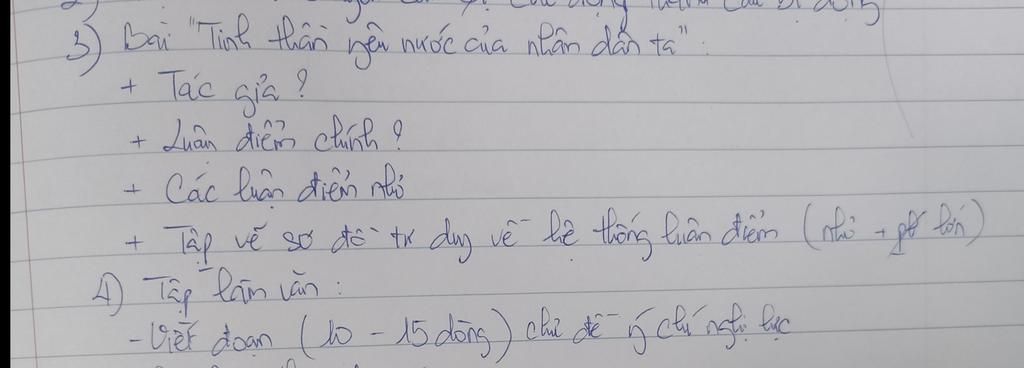 3) Bài "Tinh thần yêu nước của nhân dân ta":
+ Tác giả?
+ Luận điểm chính?
+ Các luận điểm nhỏ
+ Tập vẽ sơ đồ tư duy về hệ thống luận điểm (nhỏ + lớn)
4) Tập làm văn:
- Viết đoạn (10 - 15 dòng) chủ đề ý chí nghị lực